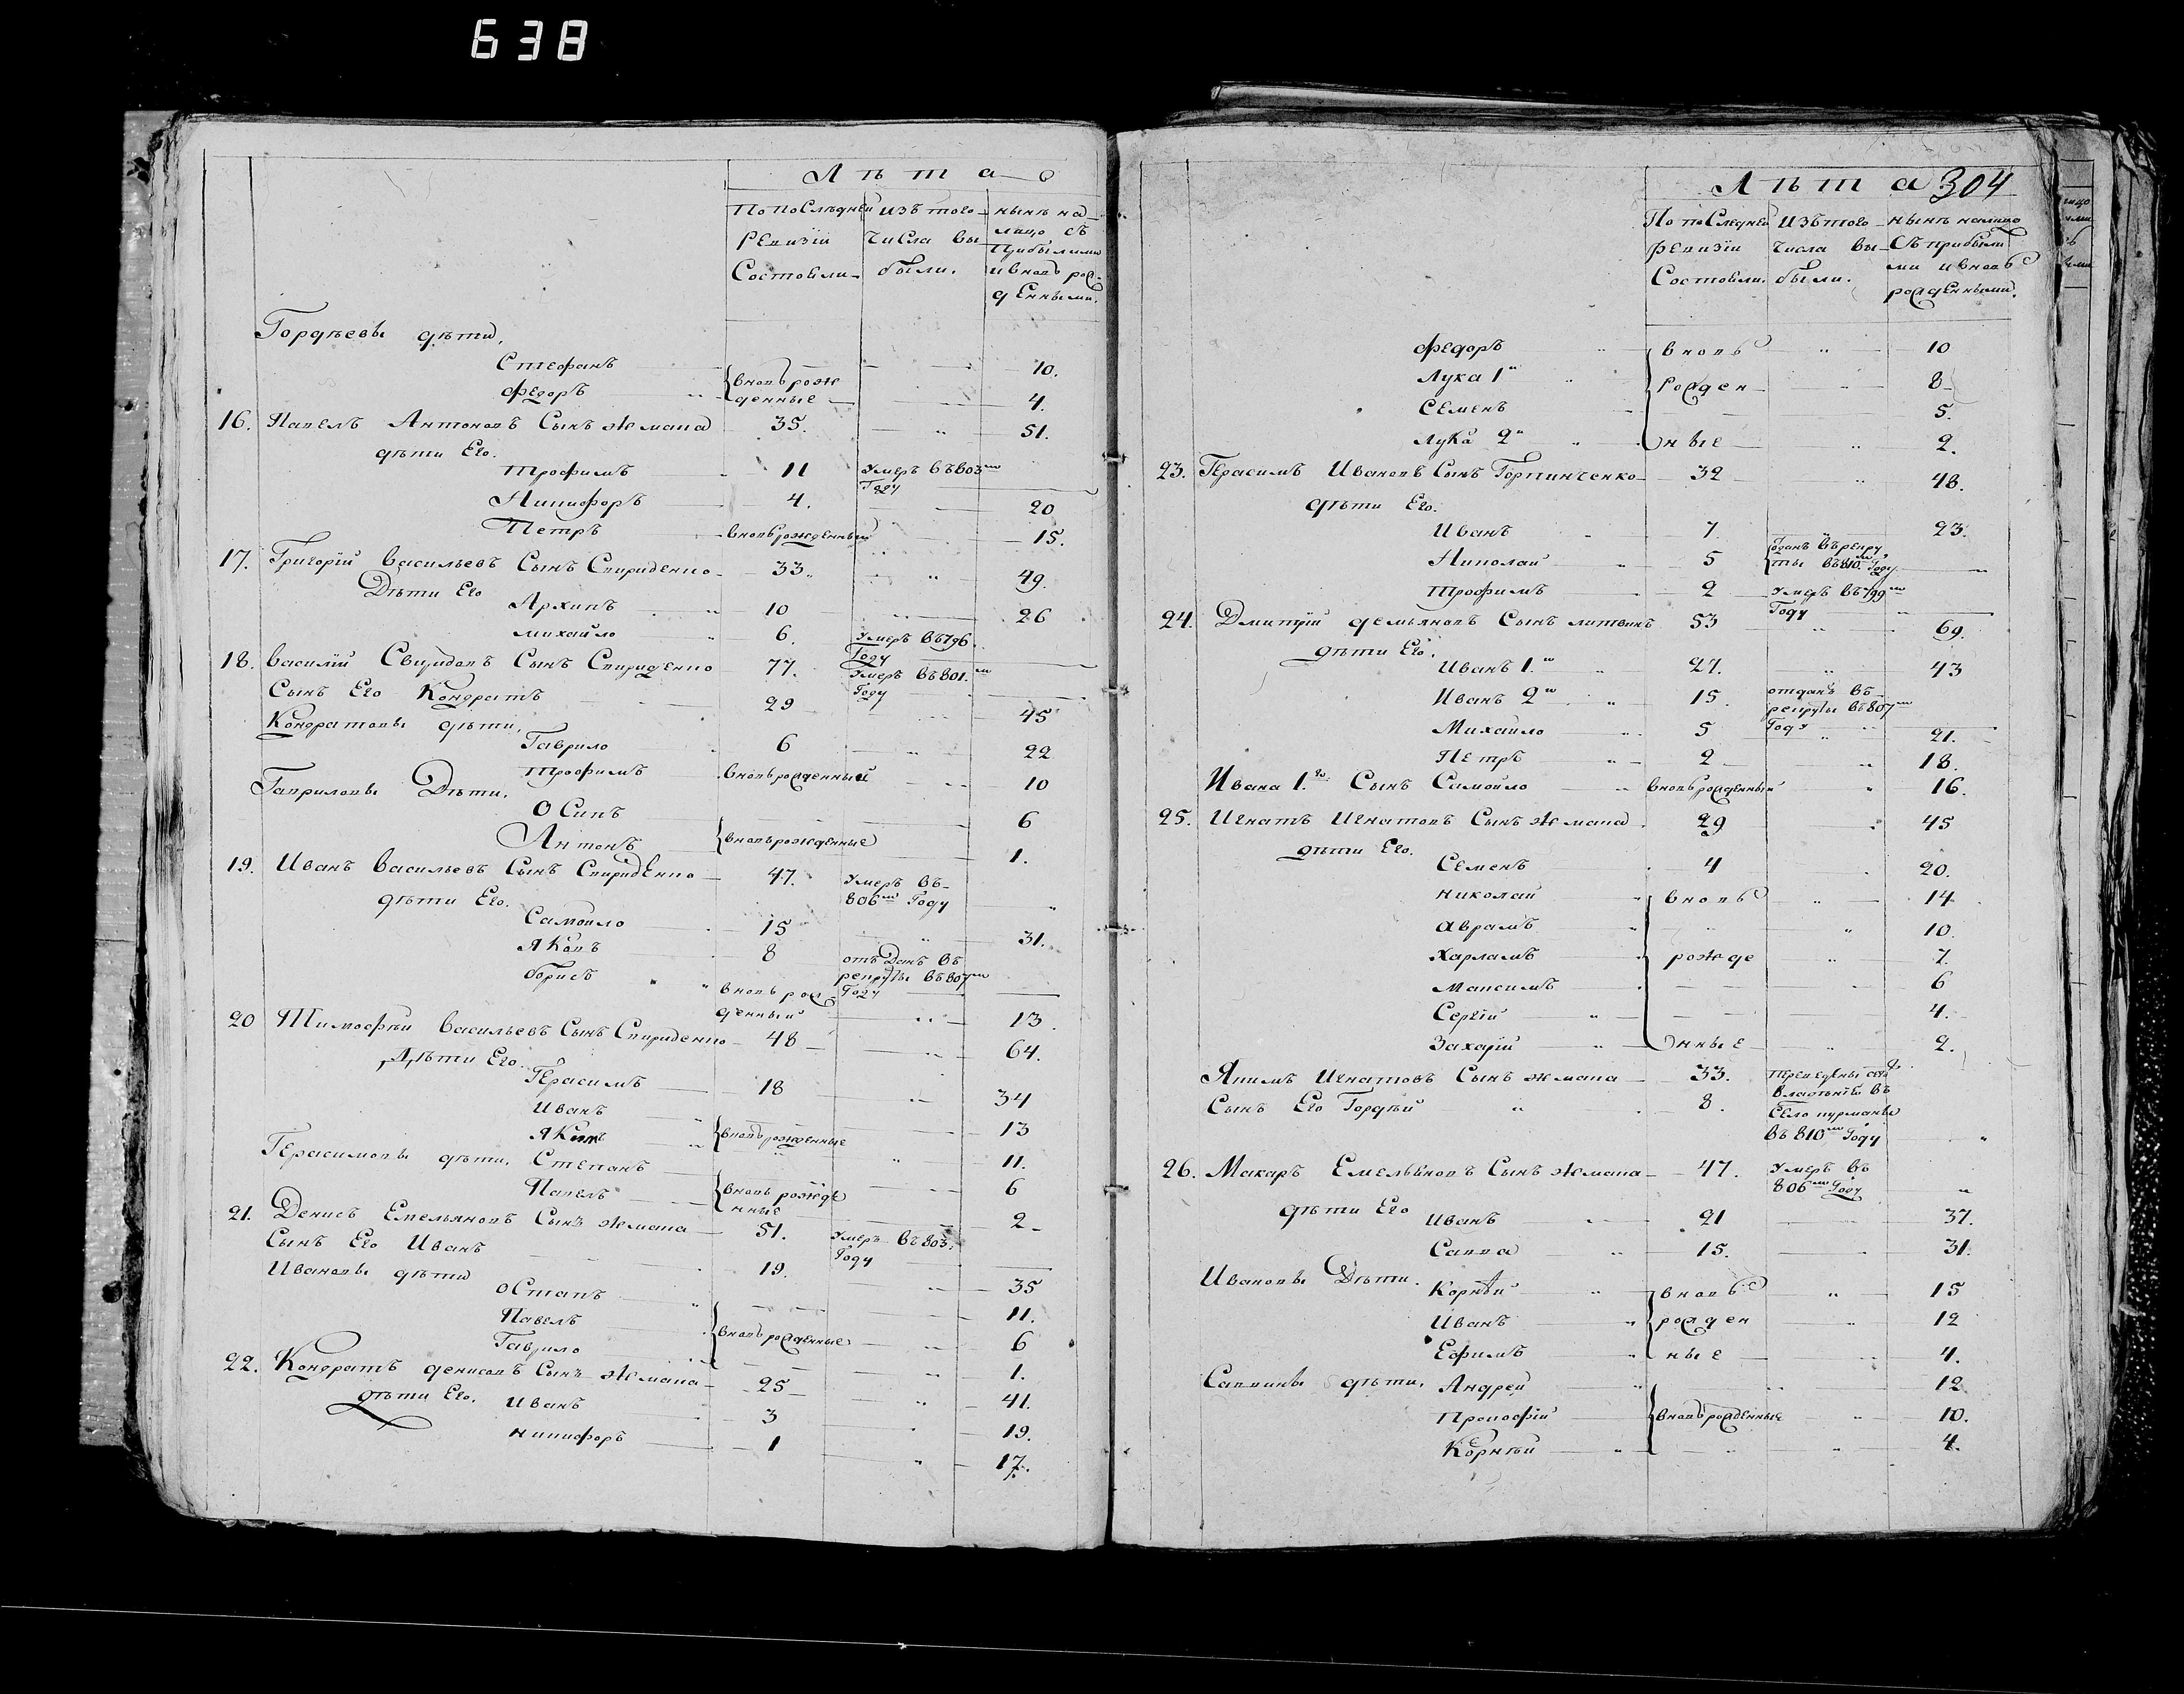 638
Лѣта
По последней изъ того нынѣ на
ревизіи числа вы лицо съ
Состояли были. прибылими
и вновь рож
денными.
Гордѣевы дѣти,
Стефанъ 10.
Федоръ вновь рожденные 4.
16. Павелъ Антоновъ Сынъ Жмака 35. 51.
дѣти Его.
Трофимъ 11 умеръ въ 803м Году
Никифоръ 4. 20
Петръ вновьрожденный 15.
17. Григорій Васильевъ Сынъ Свириденко 33. 49.
Дѣти Его
Архипъ 10 26
Михайло 6. умеръ въ 796. Году
18. Василій Свиридовъ Сынъ Свириденко 77. умеръ въ 801.м Году
Сынъ Его Кондратъ 29 45
Кондратовы дѣти,
Гаврило 6 22
Трофимъ вновьрожденный 10
Гавриловы Дѣти,
Осипъ 6
Антонъ вновьрожденные 1.
19. Иванъ Васильевъ Сынъ Свириденко 47. умеръ въ 806м Году
дѣти Его.
Самойло 15 31.
Яковъ 8 отъданъ въ рекруты въ 807м Году
Борисъ вновь рожденный 13
20 Тимофѣй Васильевъ Сынъ Свириденко 48 64.
Дѣти Его
Герасимъ 18 34
Иванъ 13
Якимъ вновьрожденные 11.
Герасимовы дѣти, Степанъ 6
Павелъ вновь рожденные 2
21. Денисъ Емельяновъ Сынъ Жмака 51. умеръ въ 803. Году
Сынъ Его Иванъ 19. 35
Ивановы дѣти
Остапъ 11.
Павелъ вновьрожденные 6
Гаврило 1.
22. Кондратъ Денисовъ Сынъ Жмака 25 41.
дѣти Его. Иванъ 3 19.
Никифоръ 1 17.
Лѣта 304
По последней изъ того нынѣ налицо
ревизіи числа вы съ прибыли
Состояли. были. ми и вновь
рожденными.
Федоръ вновь 10
Лука 1й рожден 8
Семенъ 5.
Лука 2й ные 2.
23. Герасимъ Ивановъ Сынъ Горпинченко 32 48.
дѣти Его.
Иванъ 7. 23.
Николай 5 отданъ въ рекруты въ 810.м Году
Трофимъ 2 умеръ въ 799м Году
24. Дмитрій Демьяновъ Сынъ Литвинъ 53 69.
дѣти Его.
Иванъ 1.й 27. 43
Иванъ 2й 15. отданъ въ рекруты въ 807м Году
Михайло 5 21.
Петръ 2 18.
Ивана 1.го Сынъ Самойло вновьрожденный 16.
25. Игнатъ Игнатовъ Сынъ Жмака 29 45
дѣти Его.
Семенъ 4 20.
Николай вновь 14
Аврамъ 10.
Харламъ рожде 7.
Максимъ 6
Сергій 4.
Захарій нные 2.
Якимъ Игнатовъ Сынъ Жмака 33. переведены
Сынъ Его Гордѣй 8. въ
Село
въ 810м Году
26. Макаръ Емельяновъ Сынъ Жмака 47. умеръ въ 806м Году
дѣти Его Иванъ 21 37.
Савва 15. 31.
Ивановы Дѣти. Корнѣй вновь 15
Иванъ рожден 12
Ефимъ ные 4.
Саввины дѣти, Андрей 12
Прокофій вновьрожденные 10.
Корнѣй 4.